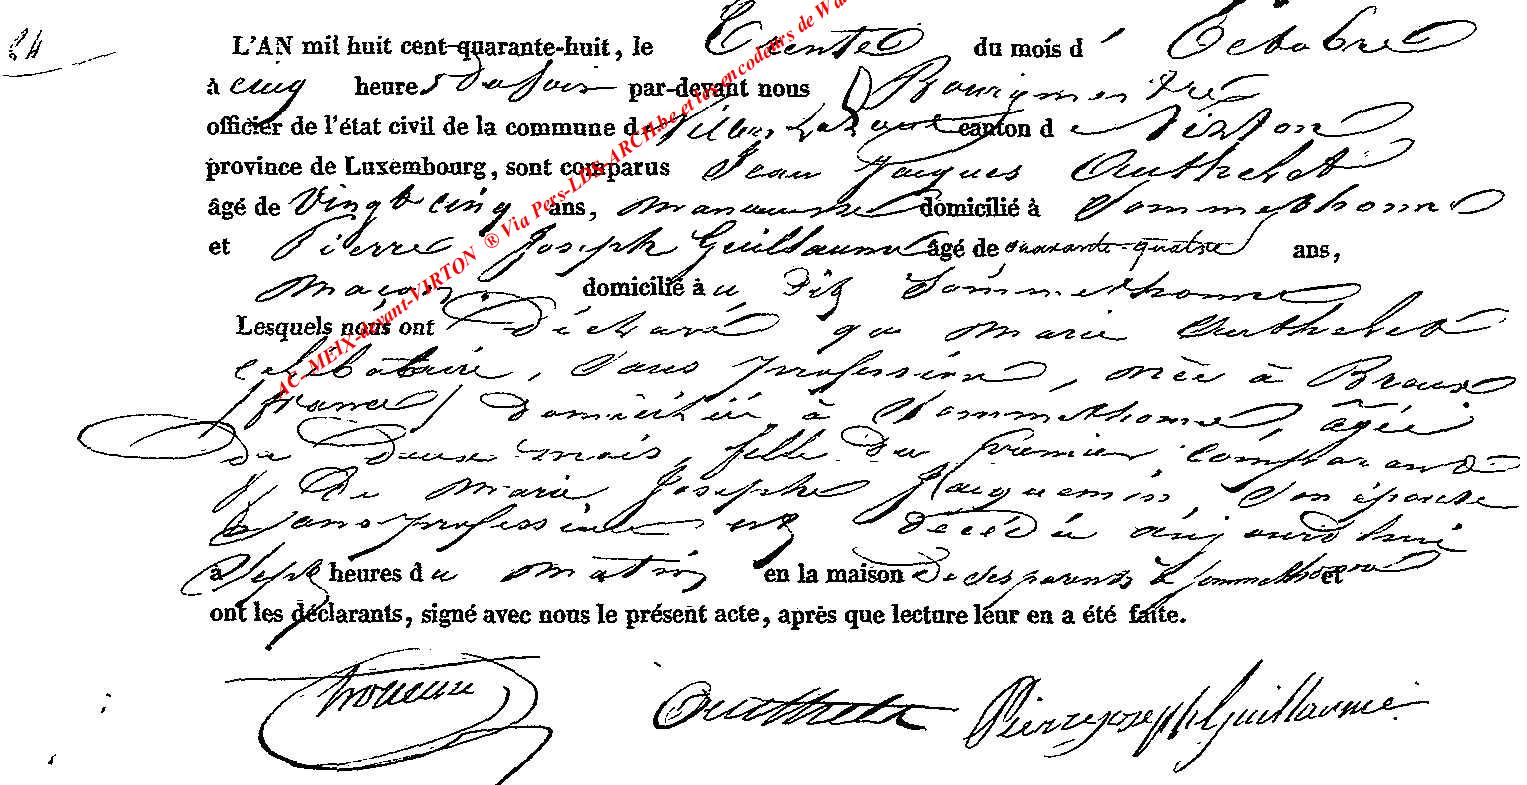 24
L'AN mil huit cent-quarante-huit, le Trente du mois d' Octobre
à cinq heures du soir par-devant nous
officier de l'état civil de la commune de Villers la Loue canton de Virton
province de Luxembourg, sont comparus Jean Jacques Outhelet
âgé de Vingt cinq ans, manœuvre domicilié à Sommethonne
et Pierre Joseph Guillaume âgé de quarante-quatre ans,
maçon domicilié à u dit Sommethonne
Lesquels nous ont déclaré que Marie Outhelet
celibataire, sans profession, née à Breux
(france) domiciliée à Sommethonne, âgée
de deux mois, fille du premier comparand
& de Marie Josephe Jacquemin son épouse
sans profession est décédée aujourd'hui
à Sept heures du matin en la maison de ses parents à Sommethonne et
ont les déclarants, signé avec nous le présent acte, après que lecture leur en a été faite.
Outhelet Pierre joseph Guillaume
AC-MEIX-devant-VIRTON ® Via Pers-LDS-ARCH.be et les encodeurs de